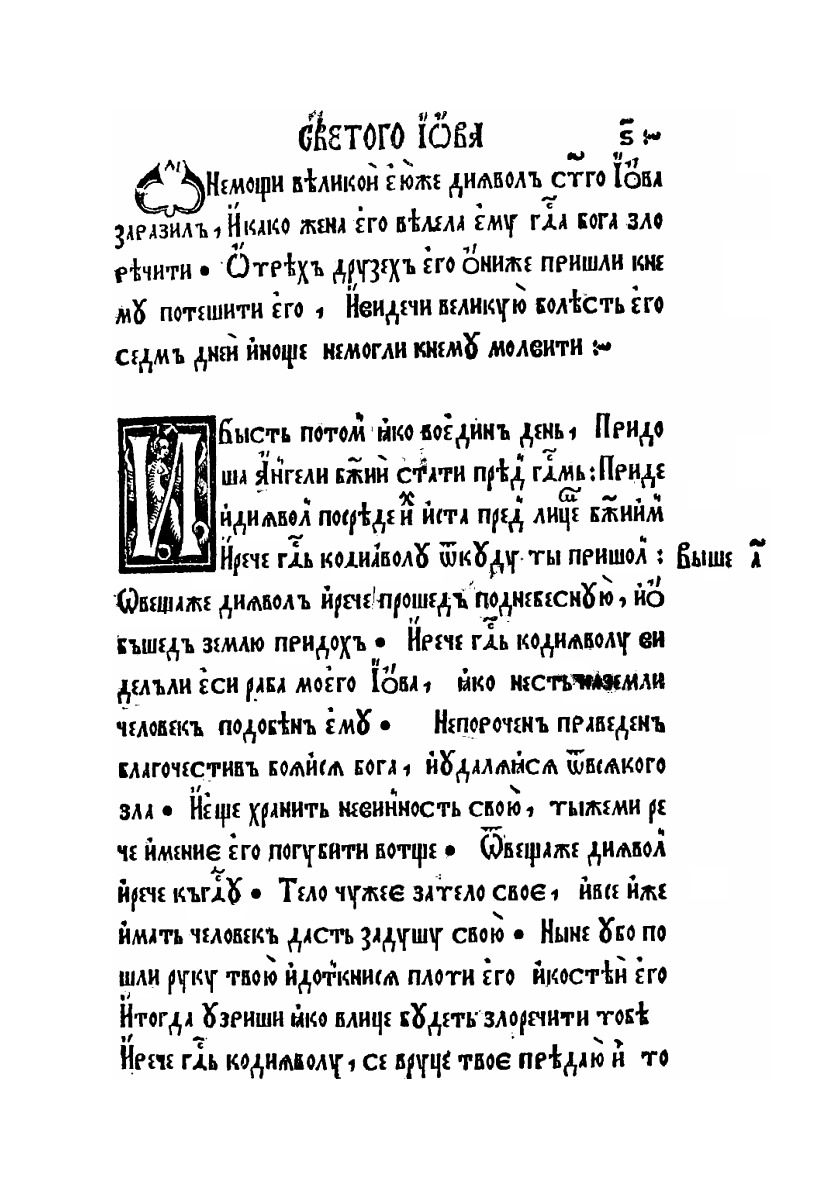 СВЕТОГО І҆Ѡ҆ВА ѕ҃ :~
Ѡ Немощи вѣликой е҆юже диꙗволъ ст҃го І҆ѡ҆ва
заразилъ, И҆како жена е҆го вѣлела е҆му гдⷭ҇а бога зло
рѣчити • Ѡ҆трѣхъ друзех е҆го о҆ниже пришли кне
мꙋ потешити е҆го , И҆видечи великую҆ болѣсть е҆го
седмъ дней и҆ноще немогли кнемꙋ молвити :~
И бысть потом ꙗко воедин день, Придо
ша а҆нгели бж҃ии҆ стати прѣд гдⷭ҇мь : Приде
и҆диꙗвол посреде и҆х и҆ста пред лицеⷨ бж҃иим
И҆рече гдⷭ҇ь кодиаволꙋ ѿкуду ты пришол : Выше а҃
Ѿвещаже диꙗволъ и҆рече прошедъ поднебесную҆, и҆о҆
бъшедъ землю придохъ • И҆рече гдⷭ҇ь кодиꙗволу ви
делъли е҆си раба моего І҆ѡ҆ва, ꙗко несть наземли
человекъ подобѣнъ е҆мꙋ • Непороченъ праведенъ
благочестивъ бояи҆ся бога, и҆ꙋдаляи҆ся ѿвсякого
зла • И҆е҆ще хранить невинность свою҆, тыжеми ре
че и҆мениє е҆го погубити вотще • Ѿвещаже диꙗвол
и҆рече къгдⷭ҇ꙋ • Тело чужеє затело своє, и҆все и҆же
и҆мать человекъ дасть задушу свою҆ • Ныне ꙋбо по
шли руку твою҆ и҆доткнися плоти е҆го и҆костѣй е҆го
И҆тогда ꙋзриши ꙗко влице бꙋдеть злоречити тобѣ
И҆рече гдⷭ҇ь кодиꙗволу, се вруце твоє прѣдаю҆ и҆ то